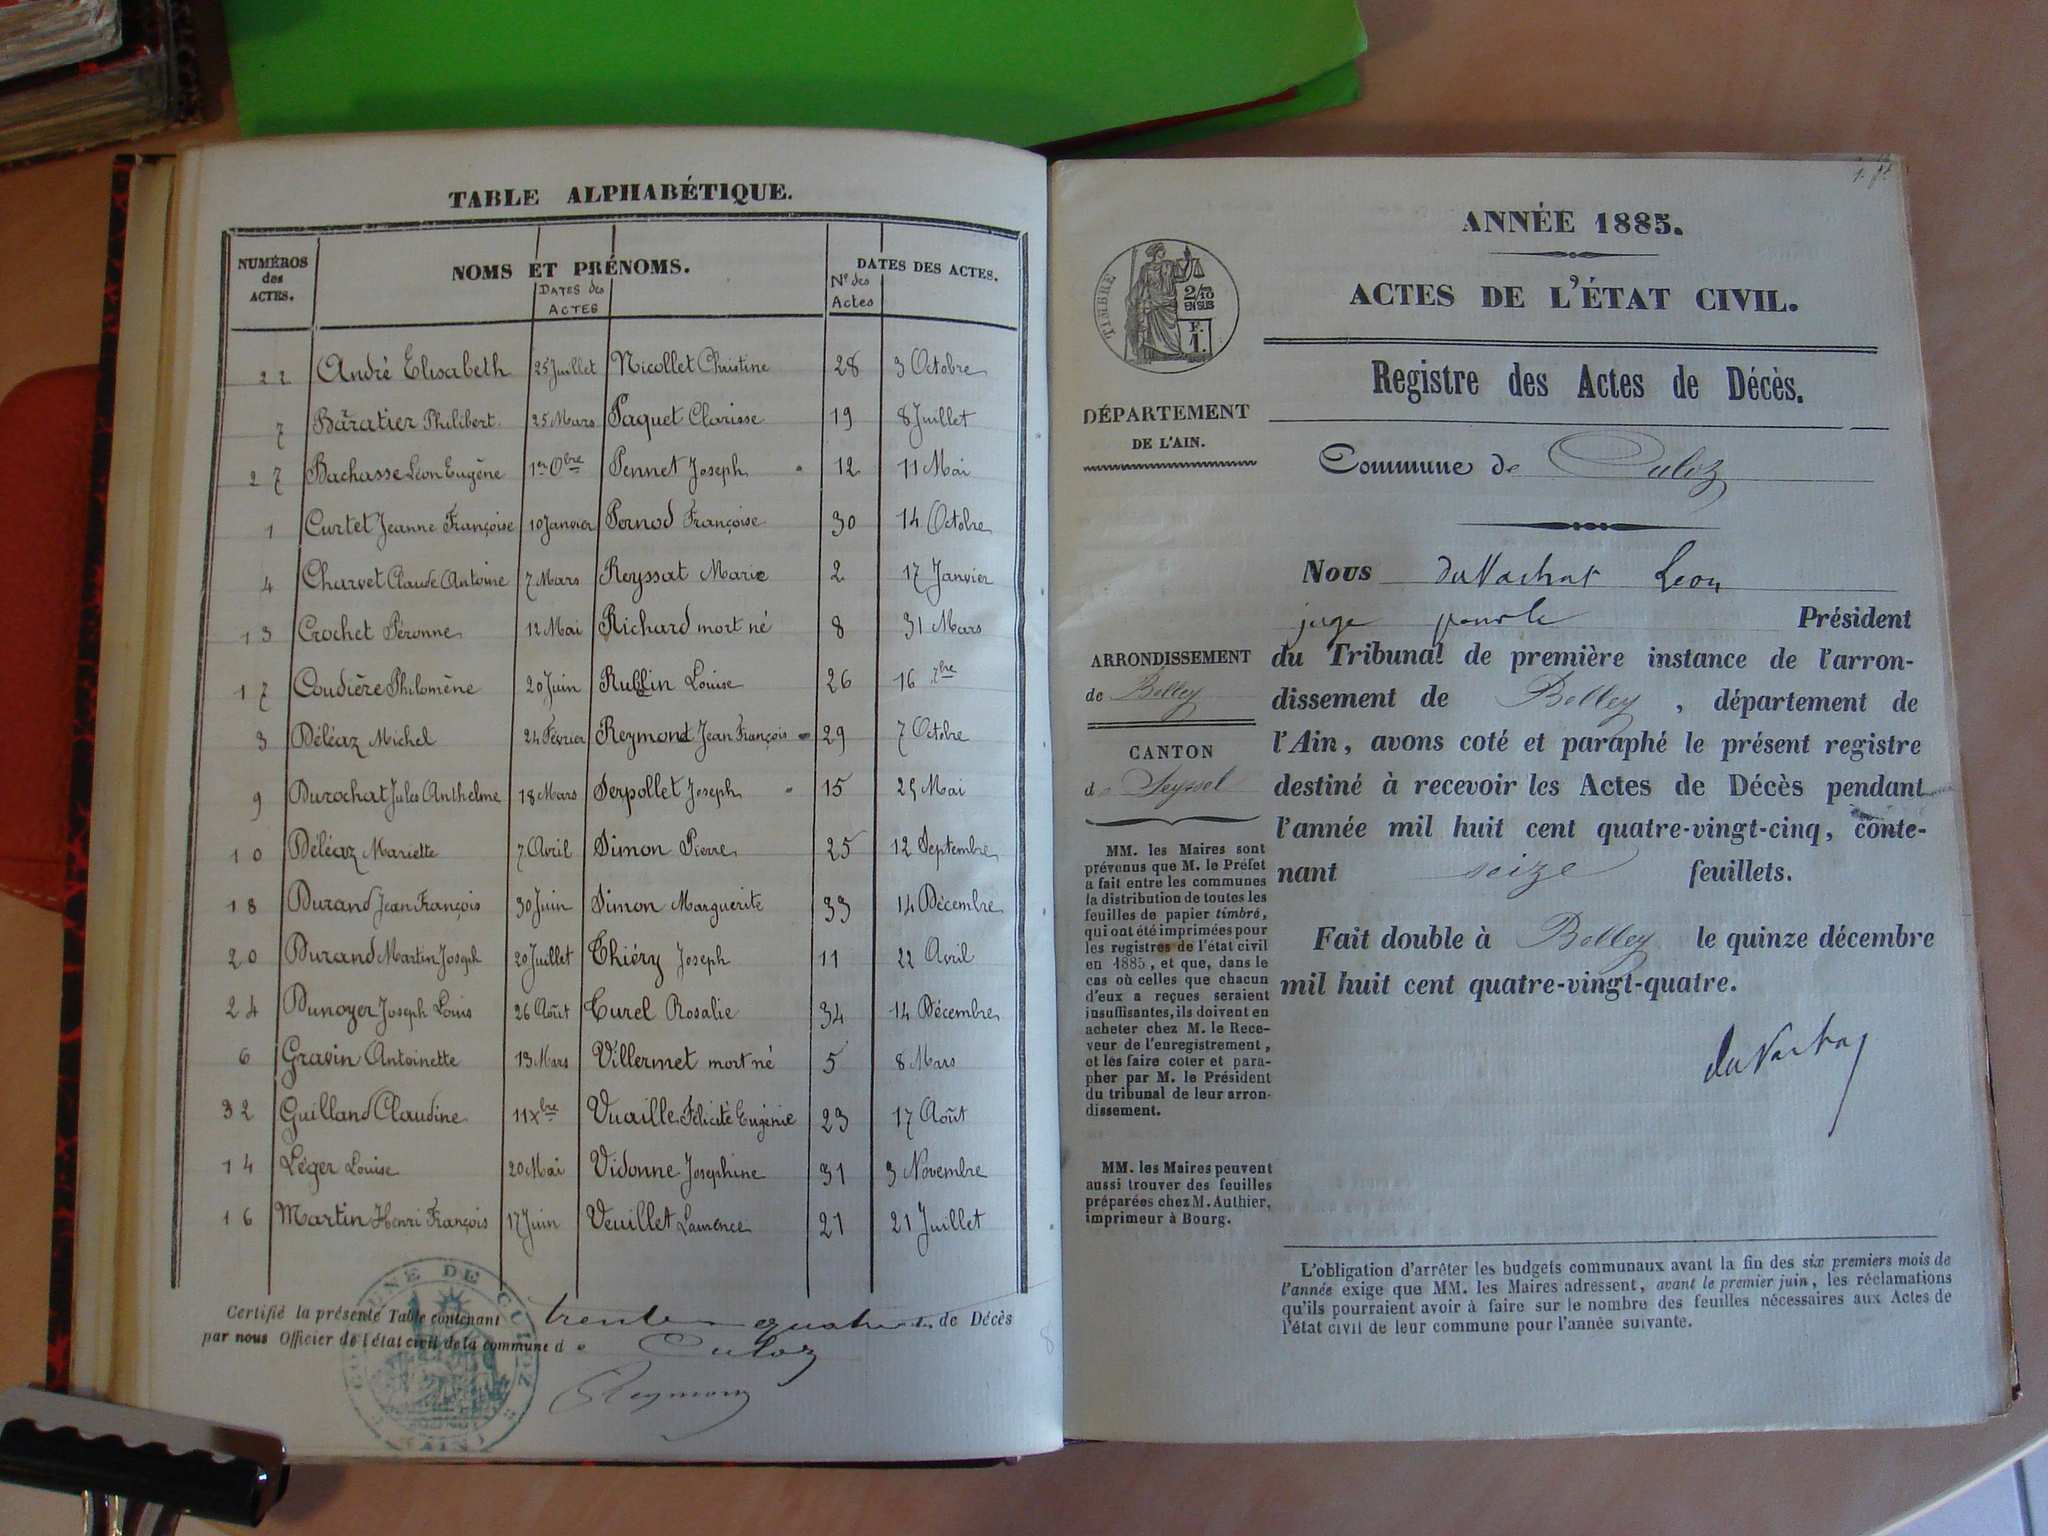 TABLE ALPHABÉTIQUE.
NUMÉROS des ACTES. NOMS ET PRÉNOMS. DATES des ACTES N° des Actes DATES DES ACTES.
22 André Elisabeth 25 Juillet Nicollet Christine 28 3 Octobre
7 Baratier Philibert 25 Mars Paquet Clarisse 19 8 Juillet
27 Bachasse Léon Eugène 1er 8bre Pennet Joseph 12 11 Mai
1 Curtet Jeanne Françoise 10 Janvier Pernod Françoise 30 14 Octobre
4 Charvet Claude Antoine 7 Mars Reyssat Marie 2 17 Janvier
13 Crochet Péronne 12 Mai Richard mort né 8 31 Mars
17 Coudière Philomène 20 Juin Rublin Louise 26 16 7bre
3 Déléaz Michel 24 Février Reymond Jean François 29 7 Octobre
9 Durochat Jules Anthelme 18 Mars Serpollet Joseph 15 25 Mai
10 Déléaz Mariette 7 Avril Simon Pierre 25 12 Septembre
18 Durand Jean François 30 Juin Simon Marguerite 33 14 Décembre
20 Durand Martin Joseph 20 Juillet Thiéry Joseph 11 22 Avril
24 Dunoyer Joseph Louis 26 Août Turel Rosalie 34 14 Décembre
6 Gravin Antoinette 13 Mars Villermet mort né 5 8 Mars
32 Guilland Claudine 11 Xbre Vuaille Félicité Eugénie 23 17 Août
14 Léger Louise 20 Mai Vidonne Josephine 31 3 Novembre
16 Martin Henri François 17 Juin Veuillet Laurence 21 21 Juillet
Certifié la présente Table contenant trente quatre de Décès
par nous Officier de l'état civil de la commune de Culoz
Reymond
DE CULOZ
AIN
ANNÉE 1885.
ACTES DE L'ÉTAT CIVIL.
Registre des Actes de Décès.
TIMBRE
2/10
EN SUS
F.
1.
DÉPARTEMENT
DE L'AIN.
ARRONDISSEMENT
de Belley
CANTON
de Seyssel
MM. les Maires sont
prévenus que M. le Préfet
a fait entre les communes
la distribution de toutes les
feuilles de papier timbré,
qui ont été imprimées pour
les registres de l'état civil
en 1885, et que, dans le
cas où celles que chacun
d'eux a reçues seraient
insuffisantes, ils doivent en
acheter chez M. le Rece-
veur de l'enregistrement,
et les faire coter et para-
pher par M. le Président
du tribunal de leur arron-
dissement.
MM. les Maires peuvent
aussi trouver des feuilles
préparées chez M. Authier,
imprimeur à Bourg.
Commune de Culoz
Nous du Vachat Léon
juge pour le Président
du Tribunal de première instance de l'arron-
dissement de Belley, département de
l'Ain, avons coté et paraphé le présent registre
destiné à recevoir les Actes de Décès pendant
l'année mil huit cent quatre-vingt-cinq, conte-
nant seize feuillets.
Fait double à Belley le quinze décembre
mil huit cent quatre-vingt-quatre.
du Vachat
L'obligation d'arrêter les budgets communaux avant la fin des six premiers mois de
l'année exige que MM. les Maires adressent, avant le premier juin, les réclamations
qu'ils pourraient avoir à faire sur le nombre des feuilles nécessaires aux Actes de
l'état civil de leur commune pour l'année suivante.